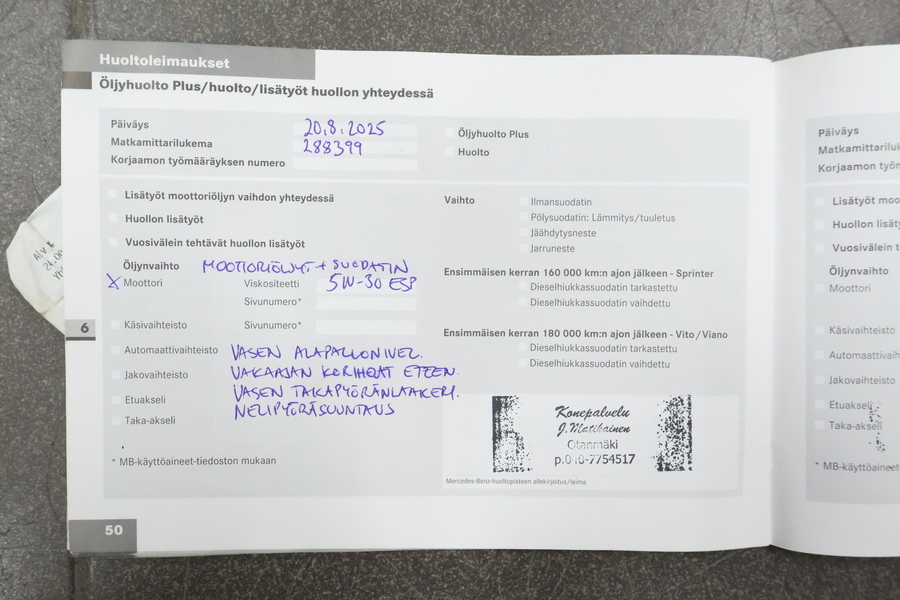 Huoltoleimaukset
Öljyhuolto Plus/huolto/lisätyöt huollon yhteydessä
Päiväys 20.8.2025
Matkamittarilukema 288399
Korjaamon työmääräyksen numero
Öljyhuolto Plus
Huolto
Lisätyöt moottoriöljyn vaihdon yhteydessä
Huollon lisätyöt
Vuosivälein tehtävät huollon lisätyöt
Öljynvaihto MOOTTORIÖLJYT + SUODATIN
X Moottori Viskositeetti 5W-30 ESP
Sivunumero*
Käsivaihteisto Sivunumero*
Automaattivaihteisto VASEN ALAPALLONIVEL.
Jakovaihteisto VAKAAJAN KORIHELAT ETEEN.
Etuakseli VASEN TAKAPYÖRÄNLAAKERI.
Taka-akseli NELIPYÖRÄSUUNTAUS
* MB-käyttöaineet-tiedoston mukaan
Vaihto Ilmansuodatin
Pölysuodatin: Lämmitys/tuuletus
Jäähdytysneste
Jarruneste
Ensimmäisen kerran 160 000 km:n ajon jälkeen - Sprinter
Dieselhiukkassuodatin tarkastettu
Dieselhiukkassuodatin vaihdettu
Ensimmäisen kerran 180 000 km:n ajon jälkeen - Vito/Viano
Dieselhiukkassuodatin tarkastettu
Dieselhiukkassuodatin vaihdettu
Konepalvelu
J. Matikainen
Otanmäki
p.040-7754517
Mercedes-Benz-huoltopisteen allekirjoitus/leima
6
50
Päiväys
Matkamittariluk
Korjaamon työm
Lisätyöt moo
Huollon lisät
Vuosivälein t
Öljynvaihto
Moottori
Käsivaihteisto
Automaattivaih
Jakovaihteisto
Etuakseli
Taka-akseli
* MB-käyttöaineet